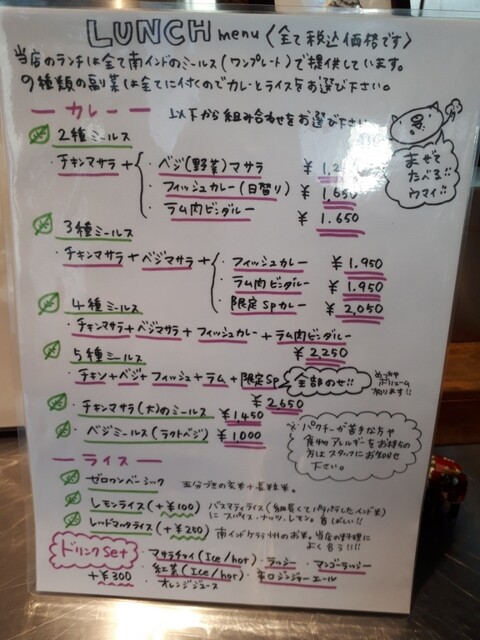 LUNCH menu 〈全て税込価格です〉
当店のランチは全て南インドのミールス(ワンプレート)で提供しています。
9種類の副菜は全てに付くのでカレーとライスをお選び下さい。
カレー 以下から組み合わせをお選び下さい
まぜて
たべる!!
ウマイ!!
2種ミールス
・チキンマサラ + ・ベジ(野菜)マサラ
・フィッシュカレー(日替り) ¥1,650
・ラム肉ビンダルー ¥1.650
3種ミールス
・チキンマサラ + ベジマサラ + ・フィッシュカレー ¥1.950
・ラム肉ビンダルー ¥1.950
・限定SPカレー ¥2,050
4種ミールス
・チキンマサラ + ベジマサラ + フィッシュカレー + ラム肉ビンダルー
¥2,250
5種ミールス
・チキン + ベジ + フィッシュ + ラム + 限定SP 全部のせ!!
¥2,650
めっちゃ
ボリューム
有ります!!
・チキンマサラ(大)のミールス ¥1,450
・ベジミールス(ラクトベジ) ¥1,000
※パクチーが苦手な方や
食物アレルギーをお持ちの
方はスタッフにお知らせ
下さい。
ライス
・ゼロワンベーシック 五分づきの玄米+長粒米。
・レモンライス(+¥100) バスマティライス(細長くてパラパラしたインド米)
にスパイス・ナッツ、レモン。香ばしい!!
・レッドマッタライス(+¥250) 南インドケララ州のお米。当店の料理に
よく合う!!!
ドリンクSet
+¥300
・マサラチャイ(Ice/hot) ・ラッシー ・マンゴーラッシー
・紅茶(Ice/hot) ・辛口ジンジャーエール
・オレンジジュース